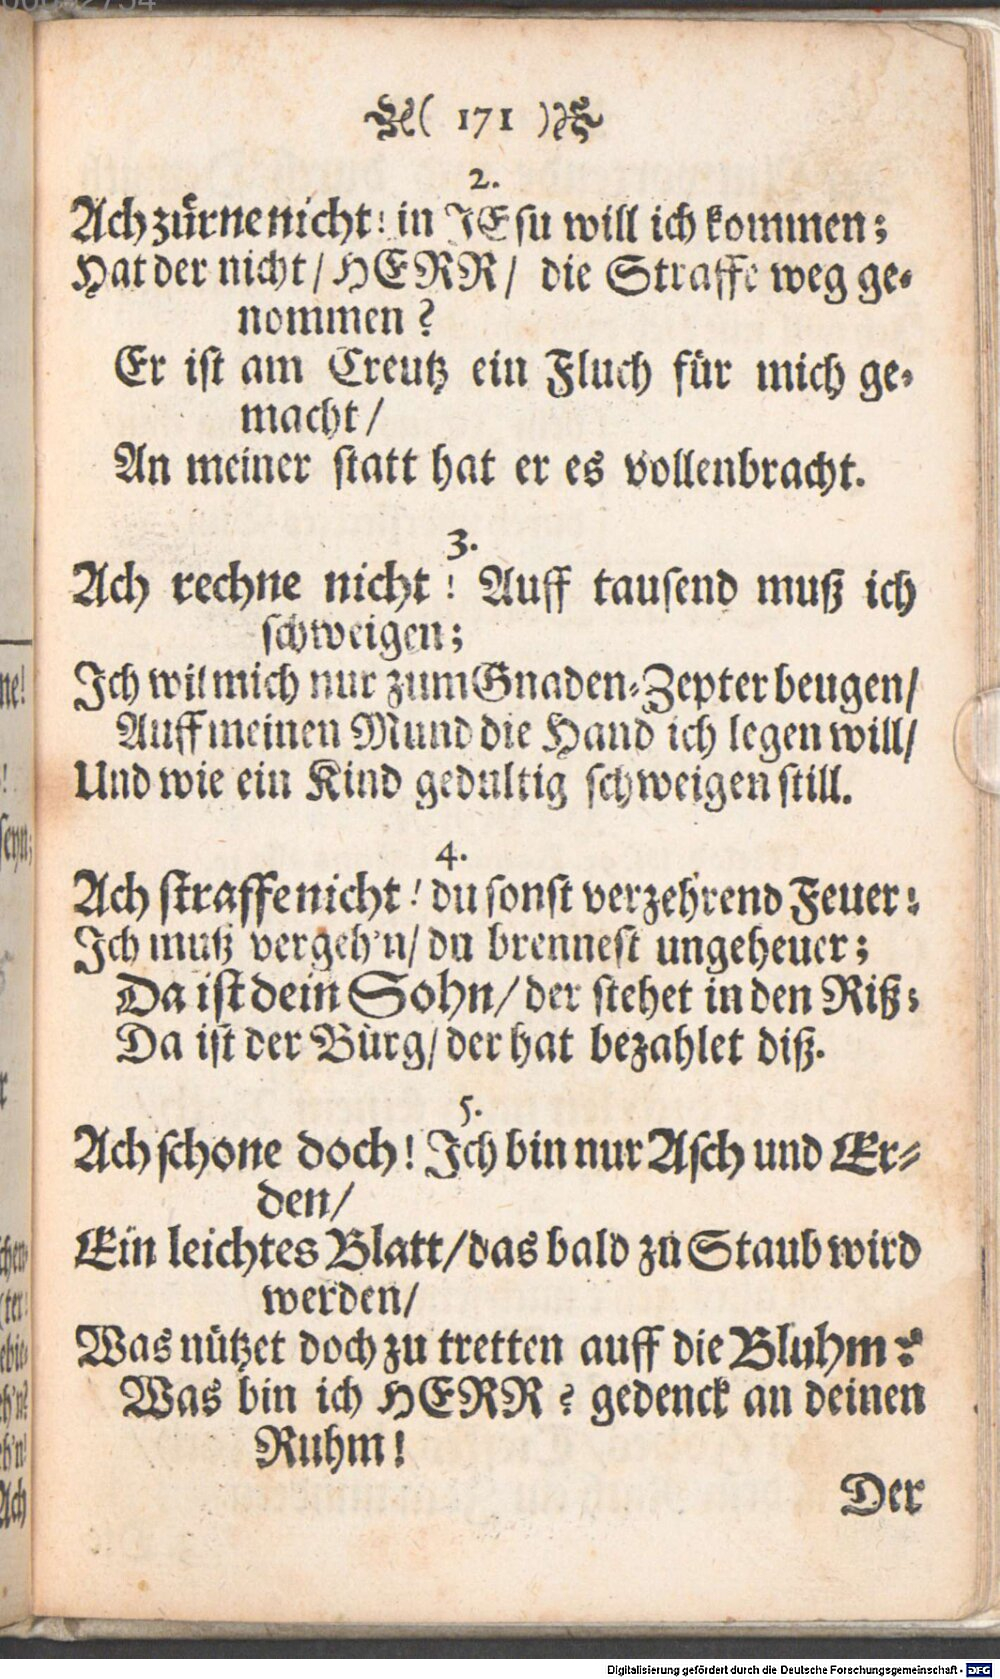 ( 171 )
2.
Ach zürne nicht! in JEsu will ich kommen;
Hat der nicht/ HERR/ die Straffe weg ge-
nommen?
Er ist am Creutz ein Fluch für mich ge-
macht/
An meiner statt hat er es vollenbracht.
3.
Ach rechne nicht! Auff tausend muß ich
schweigen;
Ich wil mich nur zum Gnaden-Zepter beugen/
Auff meinen Mund die Hand ich legen will/
Und wie ein Kind gedultig schweigen still.
4.
Ach straffe nicht! du sonst verzehrend Feuer!
Ich muß vergeh'n/ du brennest ungeheuer;
Da ist dein Sohn/ der stehet in den Riß;
Da ist der Bürg/ der hat bezahlet diß.
5.
Ach schone doch! Ich bin nur Asch und Er-
den/
Ein leichtes Blatt/ das bald zu Staub wird
werden/
Was nützet doch zu tretten auff die Bluhm?
Was bin ich HERR? gedenck an deinen
Ruhm!
Der
Digitalisierung gefördert durch die Deutsche Forschungsgemeinschaft - DFG